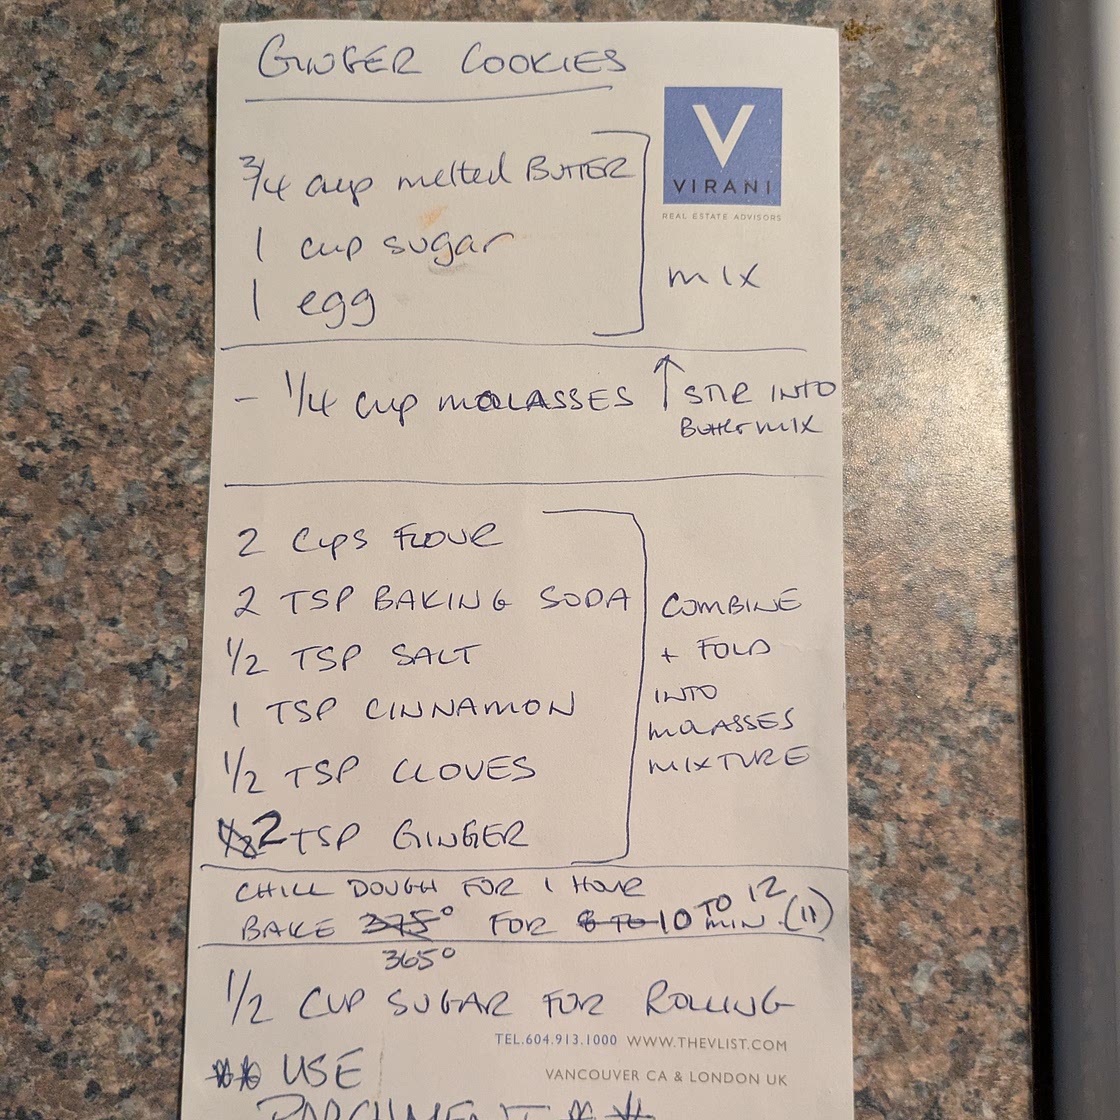 GINGER COOKIES
V
VIRANI
REAL ESTATE ADVISORS
3/4 cup melted BUTTER
1 cup sugar
1 egg
MIX
- 1/4 cup MOLASSES ↑ STIR INTO
Butter MIX
2 Cups FLOUR
2 TSP BAKING SODA
1/2 TSP SALT
1 TSP CINNAMON
1/2 TSP CLOVES
2 TSP GINGER
COMBINE
+ FOLD
INTO
MOLASSES
MIXTURE
CHILL DOUGH FOR 1 HOUR
BAKE 375° FOR 8 TO 10 TO 12 MIN. (11)
365°
1/2 CUP SUGAR FOR ROLLING
TEL.604.913.1000 WWW.THEVLIST.COM
VANCOUVER CA & LONDON UK
** USE
PARCHMENT **